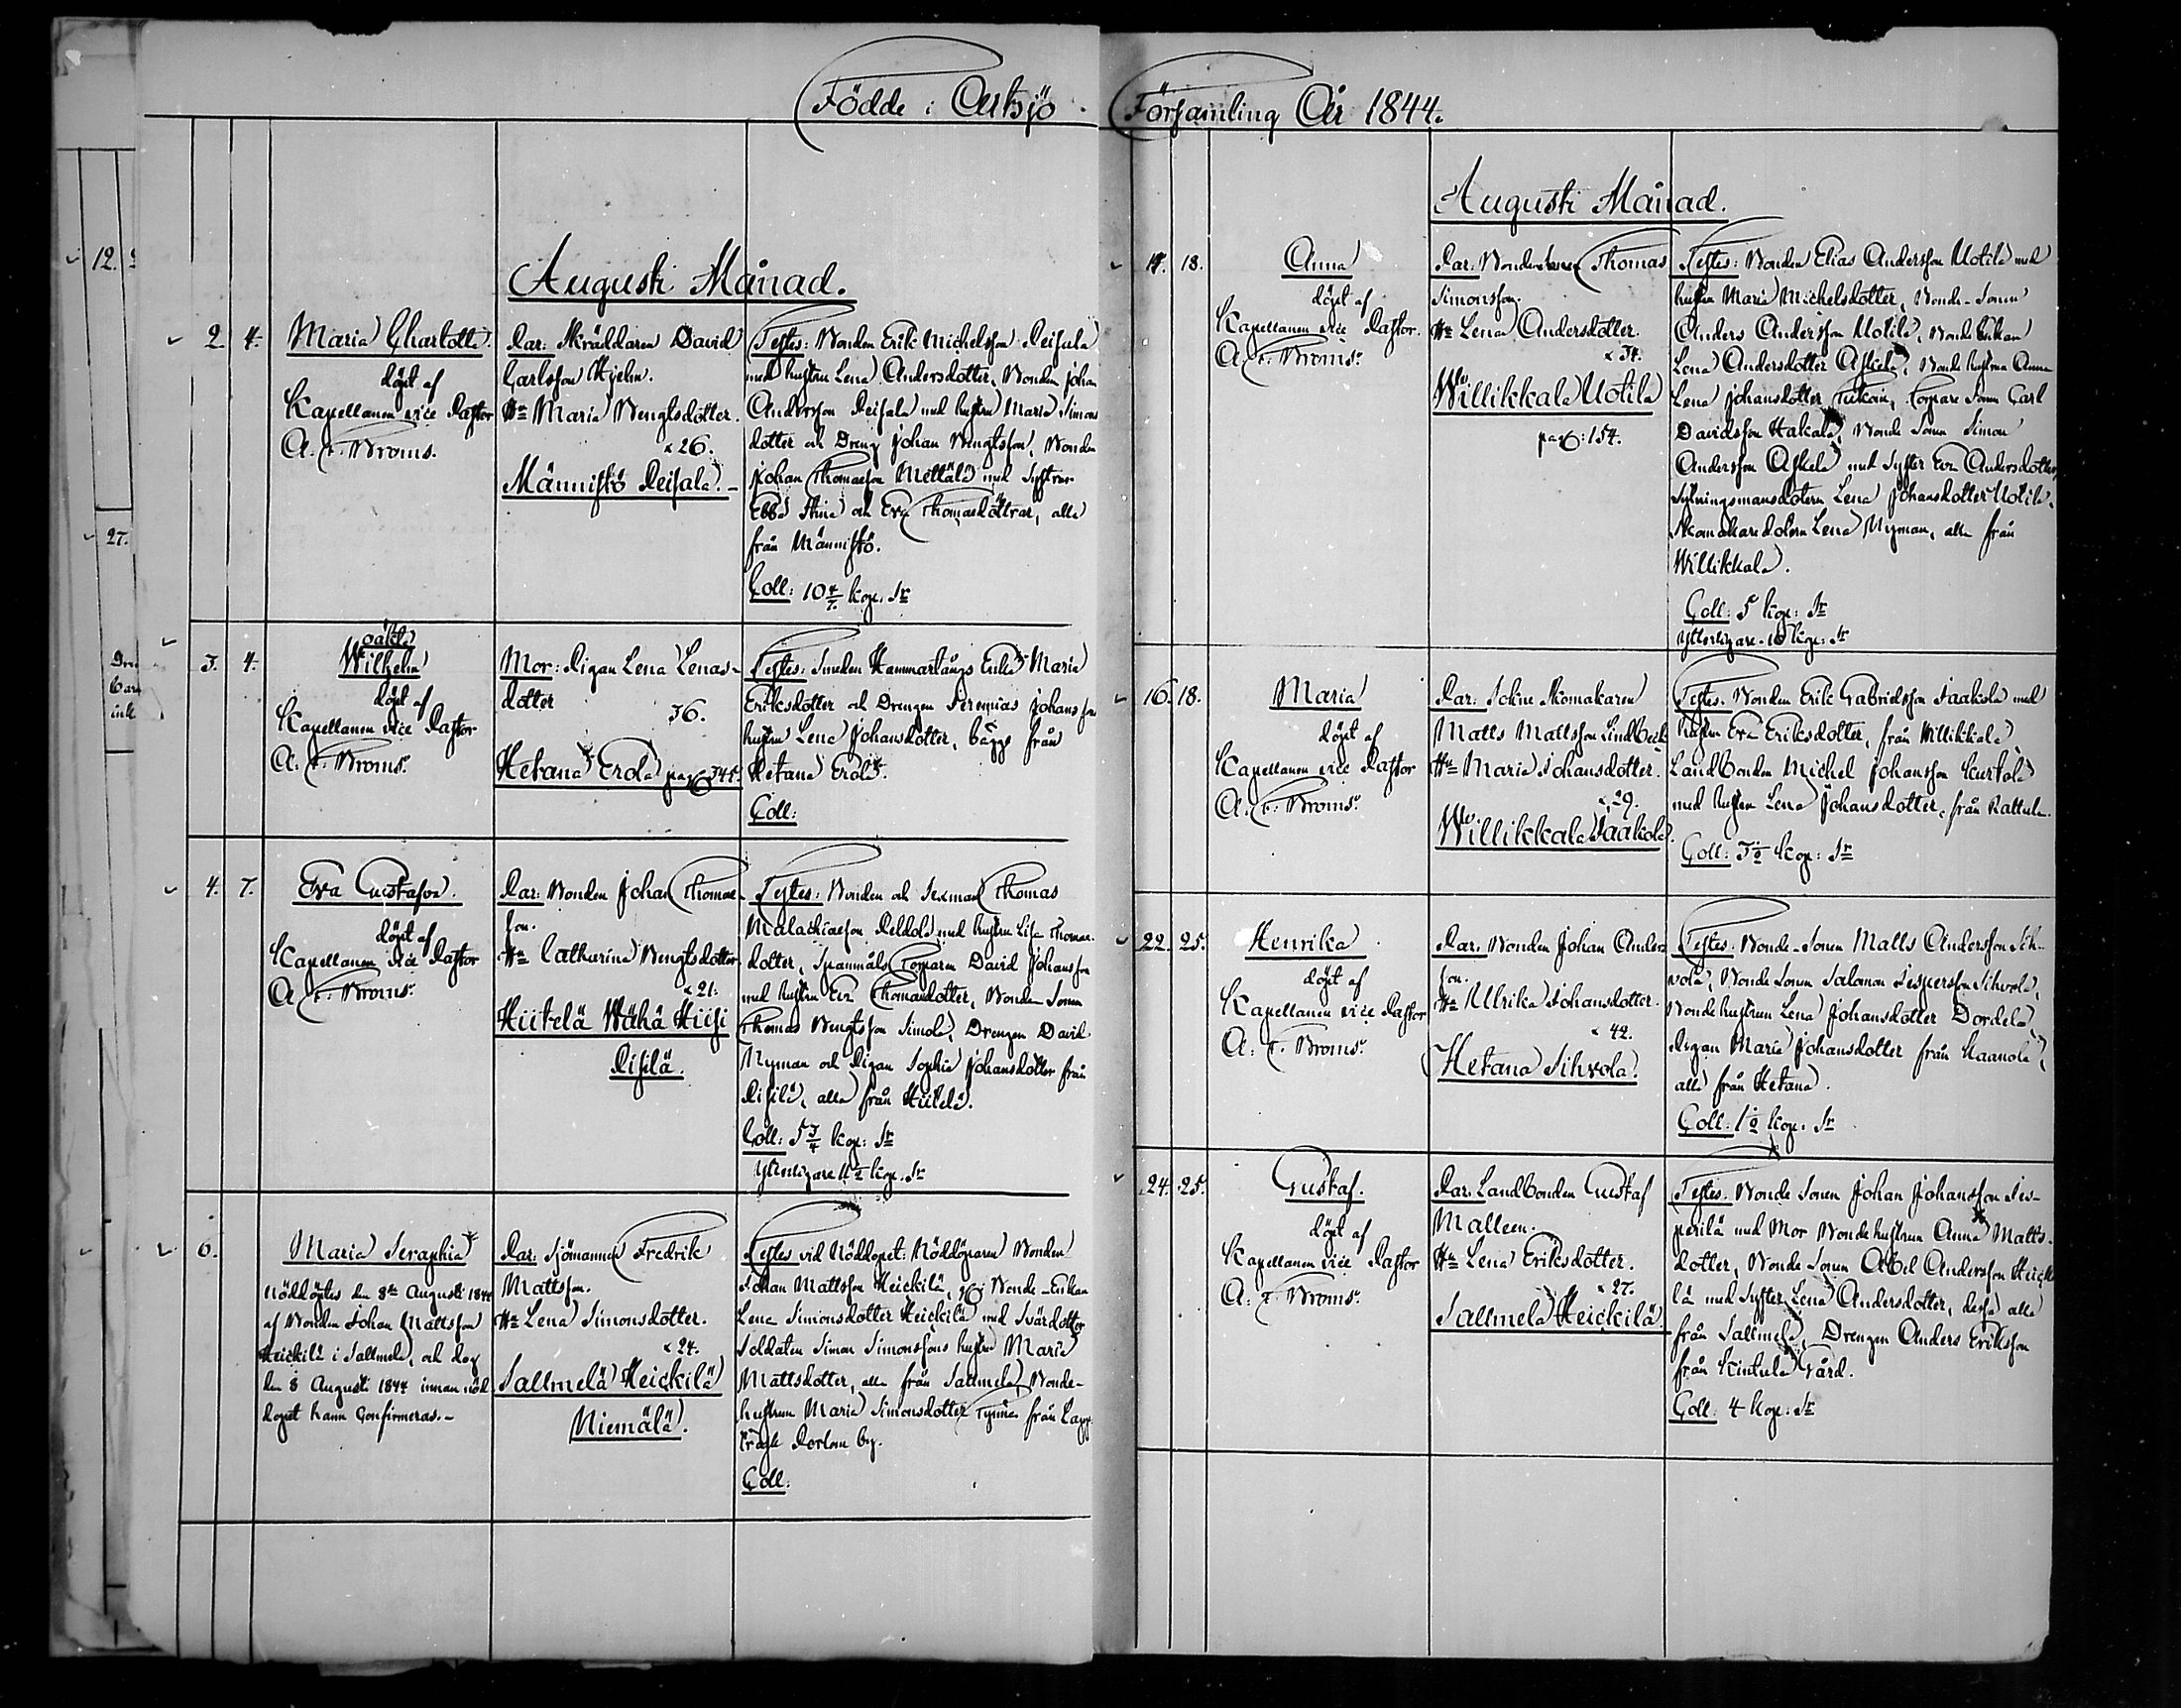 Födde i Artsjö Församling År 1844.
12.
27.
Augusti Månad.
2. 4.
Maria Charlotta
döpt af
Kapellanen vice Pastor
A. F. Broms.
Par: Skräddaren David
Carlsson Hjelm.
Hu Maria Bengtsdotter.
26.
Männistö Peisala.
Testes: Bonden Erik Michelsson Peisala
med hustru Lena Andersdotter, Bonden Johan
Andersson Peisala med hustru Maria Simons
dotter och Dreng Johan Bengtsson, Bonden
Johan Thomasson Mettälä med Systrar
Ebba Stina och Eva Thomasdöttrar, alla
från Männistö.
Coll: 10 4/7 kop. Sr
3. 4.
oäkta
Wilhelm
döpt af
Kapellanen vice Pastor
A. F. Broms.
Mor: Pigan Lena Lenas-
dotter
36.
Hetana Erola pag 345.
Testes: Smeden Hammarlångs Enka Maria
Eriksdotter och Drengen Jeremias Johansson
hustru Lena Johansdotter, bägge från
Hetana Erola.
Coll:
4. 7.
Eva Gustafva.
döpt af
Kapellanen vice Pastor
A. F. Broms.
Par: Bonden Johan Thomas-
son.
Hu Catharina Bengtsdotter.
21.
Hiitelä Wähä Hiisi
Pisilä.
Testes: Bonden och Sexman Thomas
Malachiasson Peldola med hustru Lisa Thomas
dotter, Spannmåls Torparen David Johansson
med hustru Eva Thomasdotter, Bonde Sonen
Thomas Bengtsson Simola, Drengen David
Nyman och Pigan Sophia Johansdotter från
Pisilä, alla från Hiitelä.
Coll: 5 3/4 kop: Sr
Ytterligare kop. Sr
6.
Maria Seraphia
Nöddöptes den 8de Augusti 1844
af Bonden Johan Mattsson
Heickilä i Sallmela, och dog
den 8 Augusti 1844 innan nöd
dopet hann Confirmeras.
Par: Sjömannen Fredrik
Mattsson.
Hu Lena Simonsdotter.
24.
Sallmelä Heickilä
Niemälä.
Testes vid Nöddopet: Nöddöparen Bonden
Johan Mattsson Heickilä, Bonde-Enkan
Lena Simonsdotter Heickilä med Svärdotter
Soldaten Simon Simonssons hustru Maria
Mattsdotter, alla från Sallmela, Bonde-
hustrun Maria Simonsdotter från Lapp
träsk Porlom by.
Coll:
Augusti Månad.
18.
Anna
döpt af
Kapellanen vice Pastor.
A. F. Broms.
Par: Bondesonen Thomas
Simonsson.
Hu Lena Andersdotter.
34.
Willikkala Uotila
pag: 154.
Testes: Bonden Elias Andersson Uotila med
hustru Maria Michelsdotter, Bonde-Sonen
Anders Andersson Uotila, Bonde Enkan
Lena Andersdotter Askela, Bonde hustrun Anna
Lena Johansdotter, Torpare Sonen Carl
Davidsson Hakala, Bonde Sonen Simon
Andersson Askela med Syster Eva Andersdotter,
Sytningsmansdotern Lena Johansdotter Uotila,
Skomakaredotern Lena Nyman, alla från
Willikkala.
Coll: 5 kop: Sr
Ytterligare 10 kop: Sr
16. 18.
Maria
döpt af
Kapellanen vice Pastor
A. F. Broms.
Par: Sockne Skomakaren
Matts Mattsson Lindbeck
Hu Maria Johansdotter.
29.
Willikkala Jaakola.
Testes. Bonden Erik Gabrielsson Jaakola med
hustru Eva Eriksdotter, från Willikkala,
Landbonden Michel Johansson Kurtola
med hustru Lena Johansdotter, från Rattula.
Coll: 3 1/2 kop: Sr
22. 25.
Henrika
döpt af
Kapellanen vice Pastor
A. F. Broms.
Par: Bonden Johan Anders
son.
Hu Ulrika Johansdotter.
42.
Hetana Sihvola.
Testes. Bonde-Sonen Matts Andersson Sih-
vola, Bonde Sonen Salomon Jespersson Sihvola,
Bonde hustrun Lena Johansdotter Dordela,
Pigan Maria Johansdotter från Kaanola,
alla från Hetana.
Coll: 1 1/2 kop. Sr
24. 25.
Gustaf.
döpt af
Kapellanen vice Pastor
A. F. Broms.
Par: Landbonden Gustaf
Malleen.
Hu Lena Eriksdotter.
27.
Sallmela Heickilä.
Testes. Bonde Sonen Johan Johansson Jes-
perilä med Mor Bondehustrun Anna Matts-
dotter, Bonde Sonen Abel Andersson Heicki
lä med Syster Lena Andersdotter, dessa alla
från Sallmela, Drengen Anders Eriksson
från Kintula Gård.
Coll: 4 kop: Sr